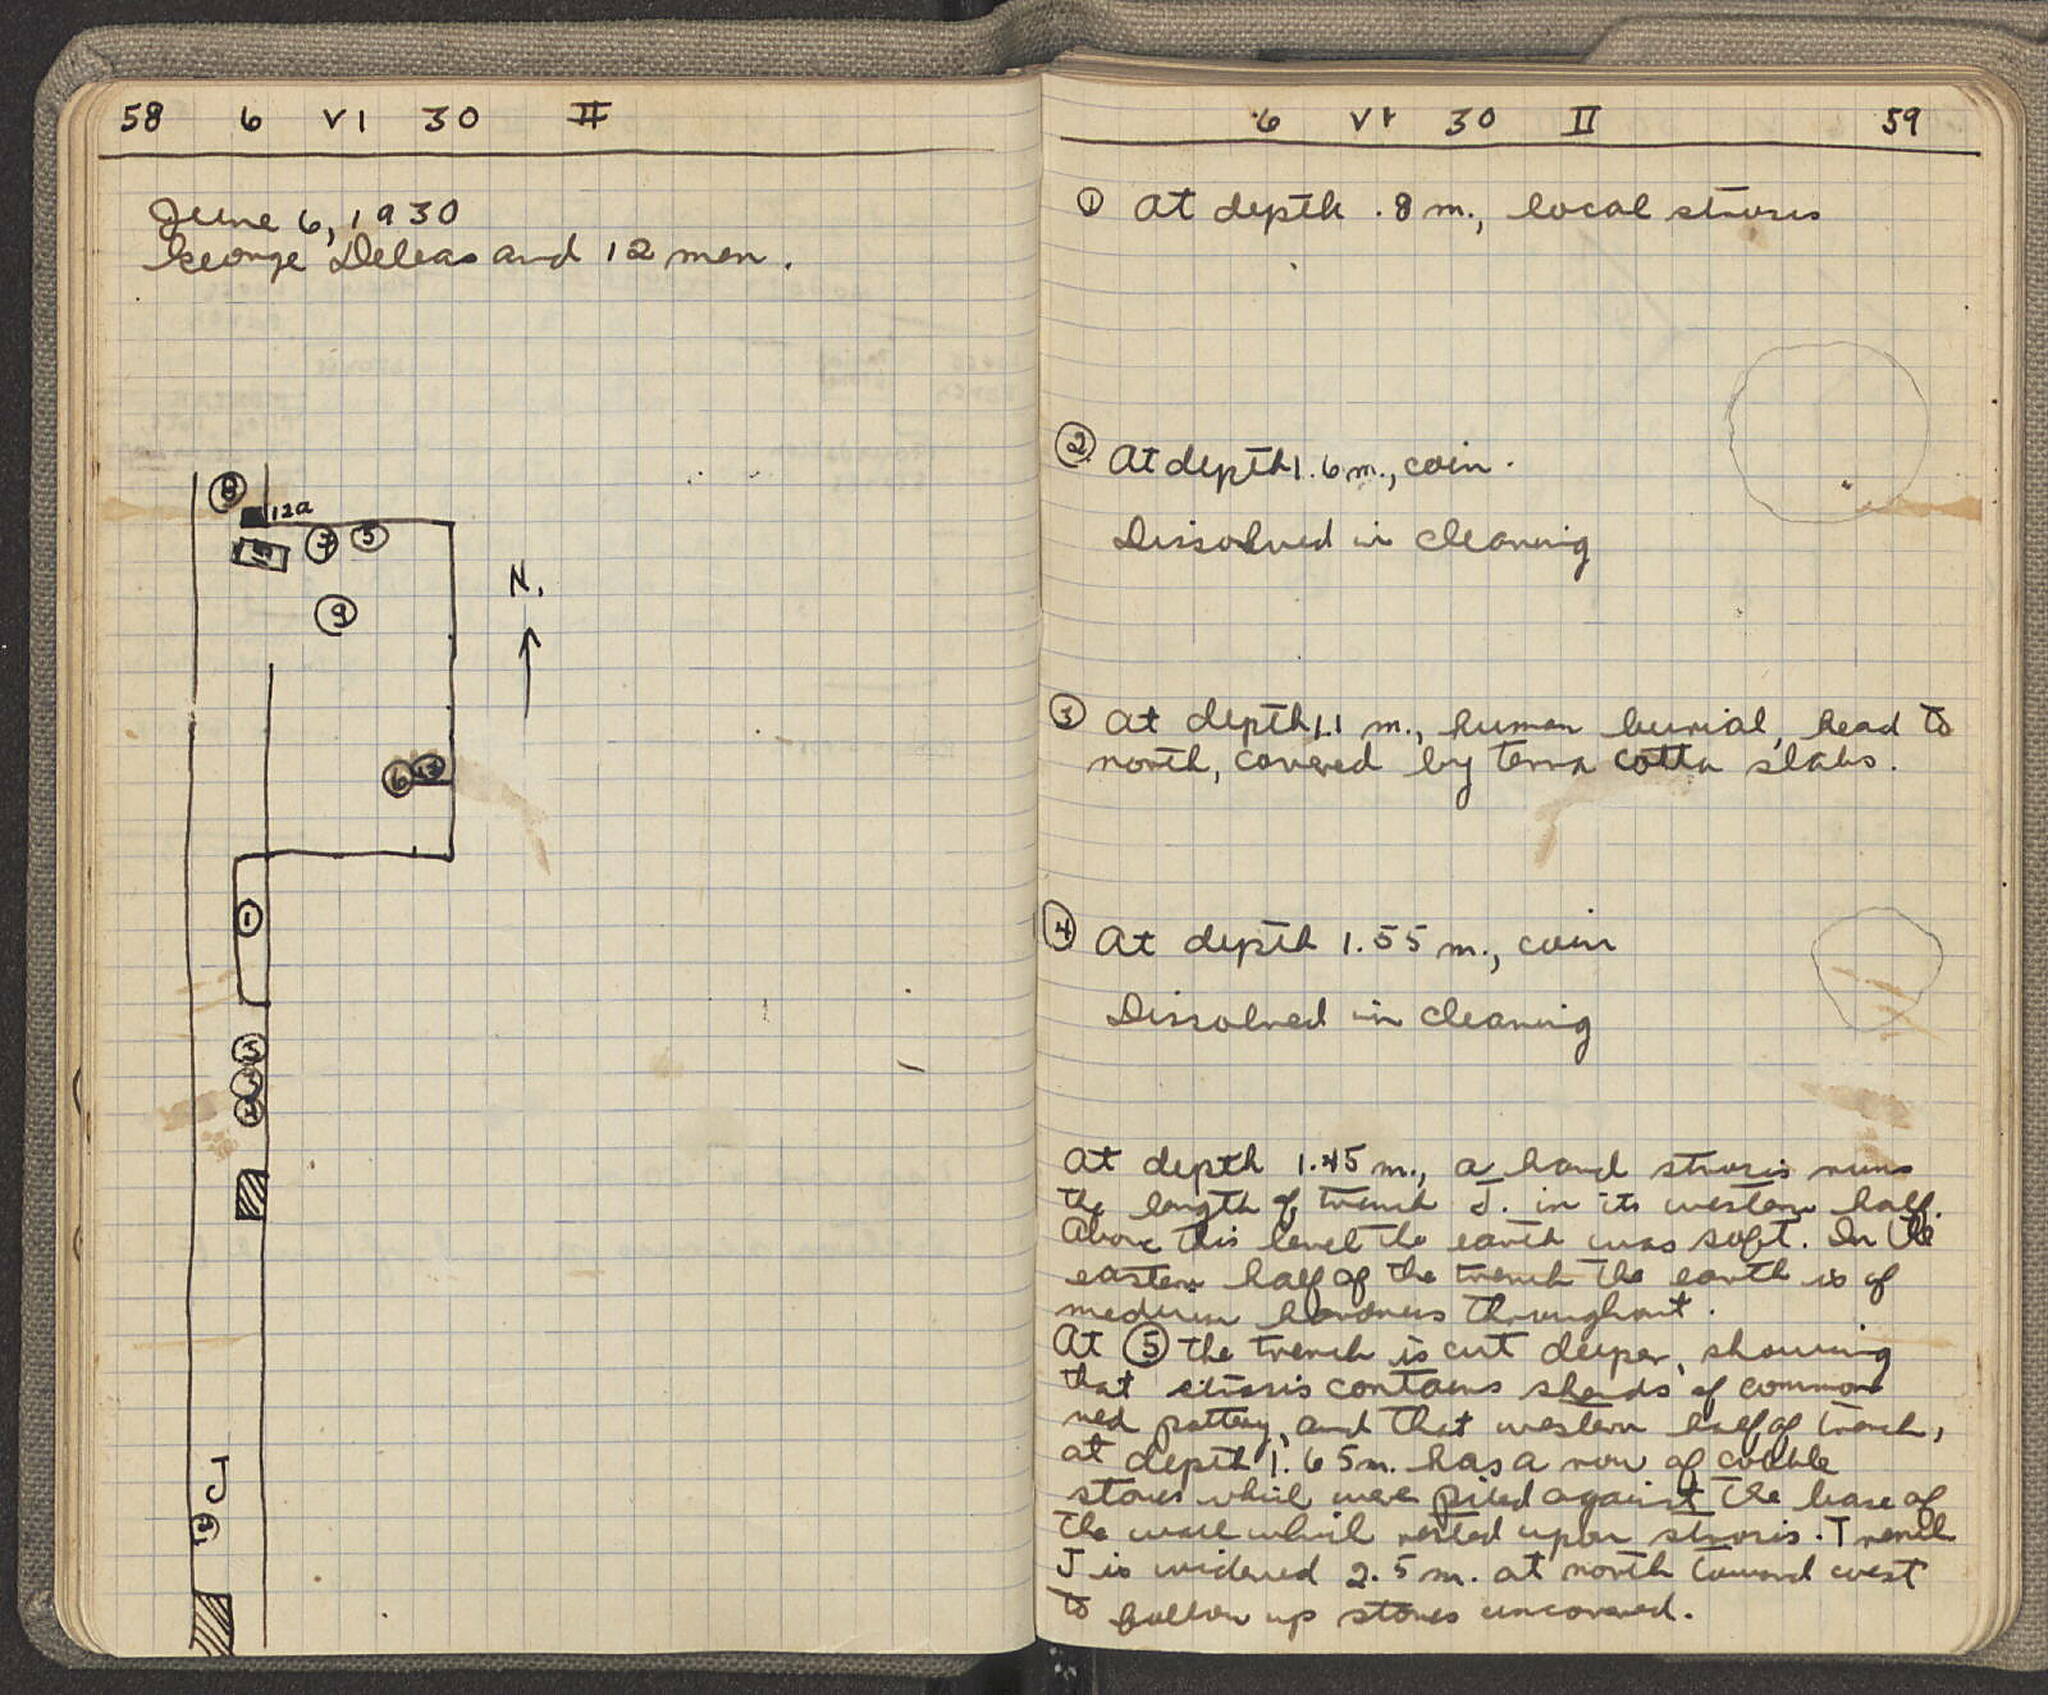 58 6 VI 30 II
June 6, 1930
George Deleas and 12 men.
8
12a
3 5
9
N.
6
1
J
6 VI 30 II 59
① At depth .8 m., local strosis
② At depth 1.6 m., coin.
Dissolved in cleaning
③ At depth 1.1 m., human burial, head to
north, covered by terra cotta slabs.
④ At depth 1.55 m., coin
Dissolved in cleaning
At depth 1.45 m., a hard strosis runs
the length of trench J. in its western half.
Above this level the earth was soft. In the
eastern half of the trench the earth is of
medium hardness throughout.
At ⑤ the trench is cut deeper, showing
that strosis contains sherds of common
red pottery, and that western half of trench,
at depth 1.65 m. has a row of cobble
stones which were piled against the base of
the wall which rested upon strosis. Trench
J is widened 2.5 m. at north toward east
to follow up stones uncovered.